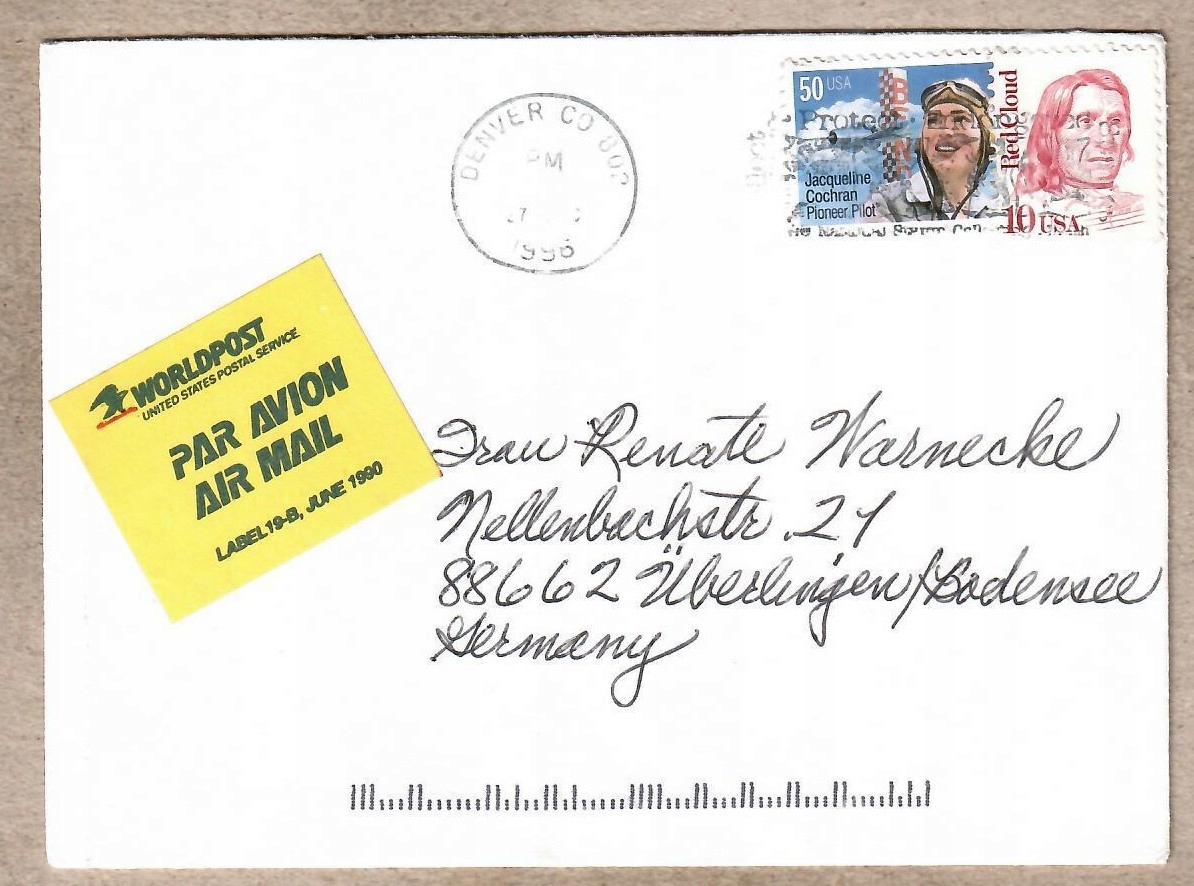 DENVER CO 802
PM
1996
50 USA
Jacqueline
Cochran
Pioneer Pilot
Red Cloud
10 USA
Protect
WORLDPOST
UNITED STATES POSTAL SERVICE
PAR AVION
AIR MAIL
LABEL 19-B, JUNE 1990
Frau Renate Warnecke
Nellenbachstr. 21
88662 Überlingen/Bodensee
Germany